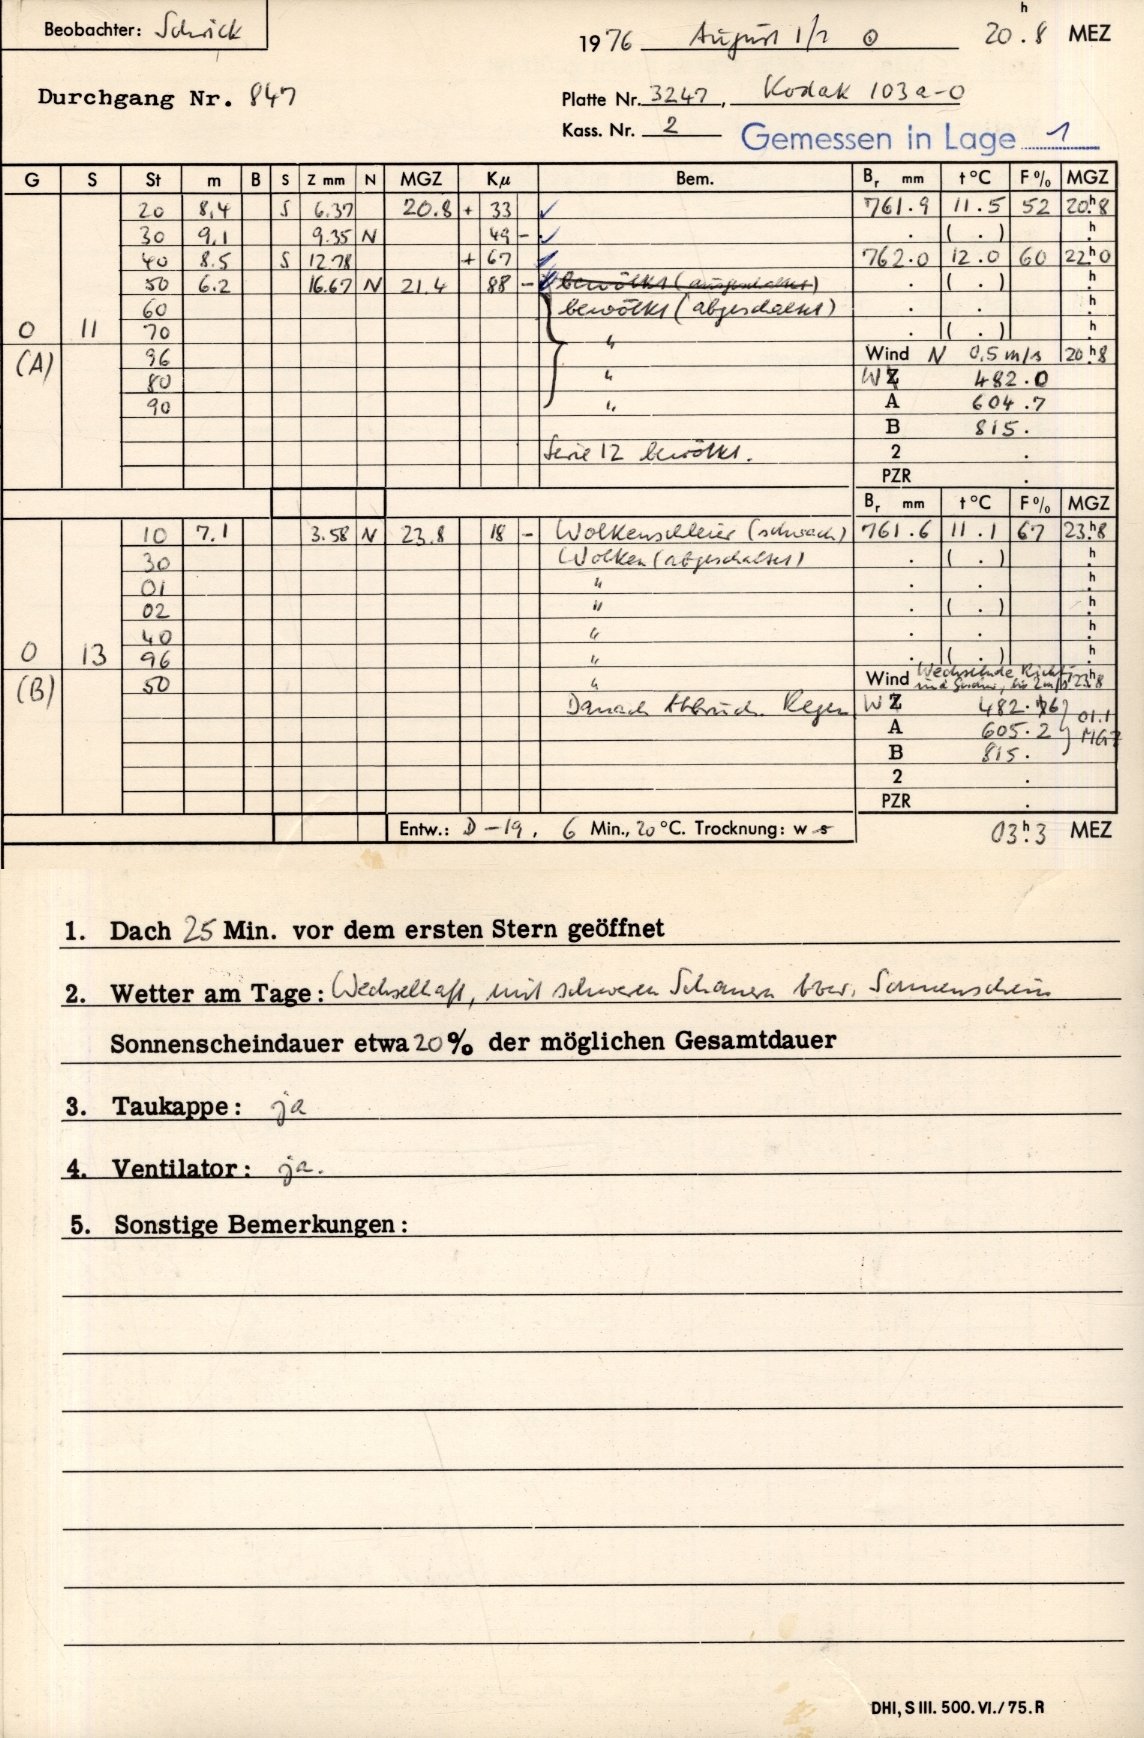 Beobachter: Schrick
1976 August 1/2 ⊙ 20.8 h MEZ
Durchgang Nr. 847
Platte Nr. 3247, Kodak 103a-O
Kass. Nr. 2
Gemessen in Lage 1
G S St m B S Z mm N MGZ Kµ Bem. Br mm t °C F % MGZ
20 8,4 S 6.37 20.8 + 33 ✓ 761.9 11.5 52 20h.8
30 9.1 9.35 N 49 - ✓ . ( . ) h.
40 8.5 S 12.78 + 67 762.0 12.0 60 22h0
50 6.2 16.67 N 21.4 88 - bewölkt (ausgeschaltet) . ( . ) h.
60 bewölkt (abgeschaltet) . . h.
0 11 70 " . ( . ) h.
(A) 96 Wind N 0,5 m/s 20h.8
80 " WZ 482.0
90 " A 604.7
B 815.
Serie 12 bewölkt. 2 .
PZR .
Br mm t °C F % MGZ
10 7.1 3.58 N 23.8 18 - Wolkenschleier (schwach) 761.6 11.1 67 23h.8
30 Wolken (abgeschaltet) . ( . ) h.
01 " . . h.
02 " . ( . ) h.
40 " . . h.
0 13 96 " . ( . ) h.
(B) 50 " Wind Wechselnde Richt. und bis 2 m/s 23h.8
Danach Abbruch. Regen WZ 482.
A 605.2 01.1 MGZ
B 815.
2 .
PZR .
Entw.: D-19, 6 Min., 20 °C. Trocknung: w s
03h.3 MEZ
1. Dach 25 Min. vor dem ersten Stern geöffnet
2. Wetter am Tage: Wechselhaft, mit schweren Schauern bzw. Sonnenschein
Sonnenscheindauer etwa 20 % der möglichen Gesamtdauer
3. Taukappe: ja
4. Ventilator: ja.
5. Sonstige Bemerkungen:
DHI, S III. 500. VI./75. R